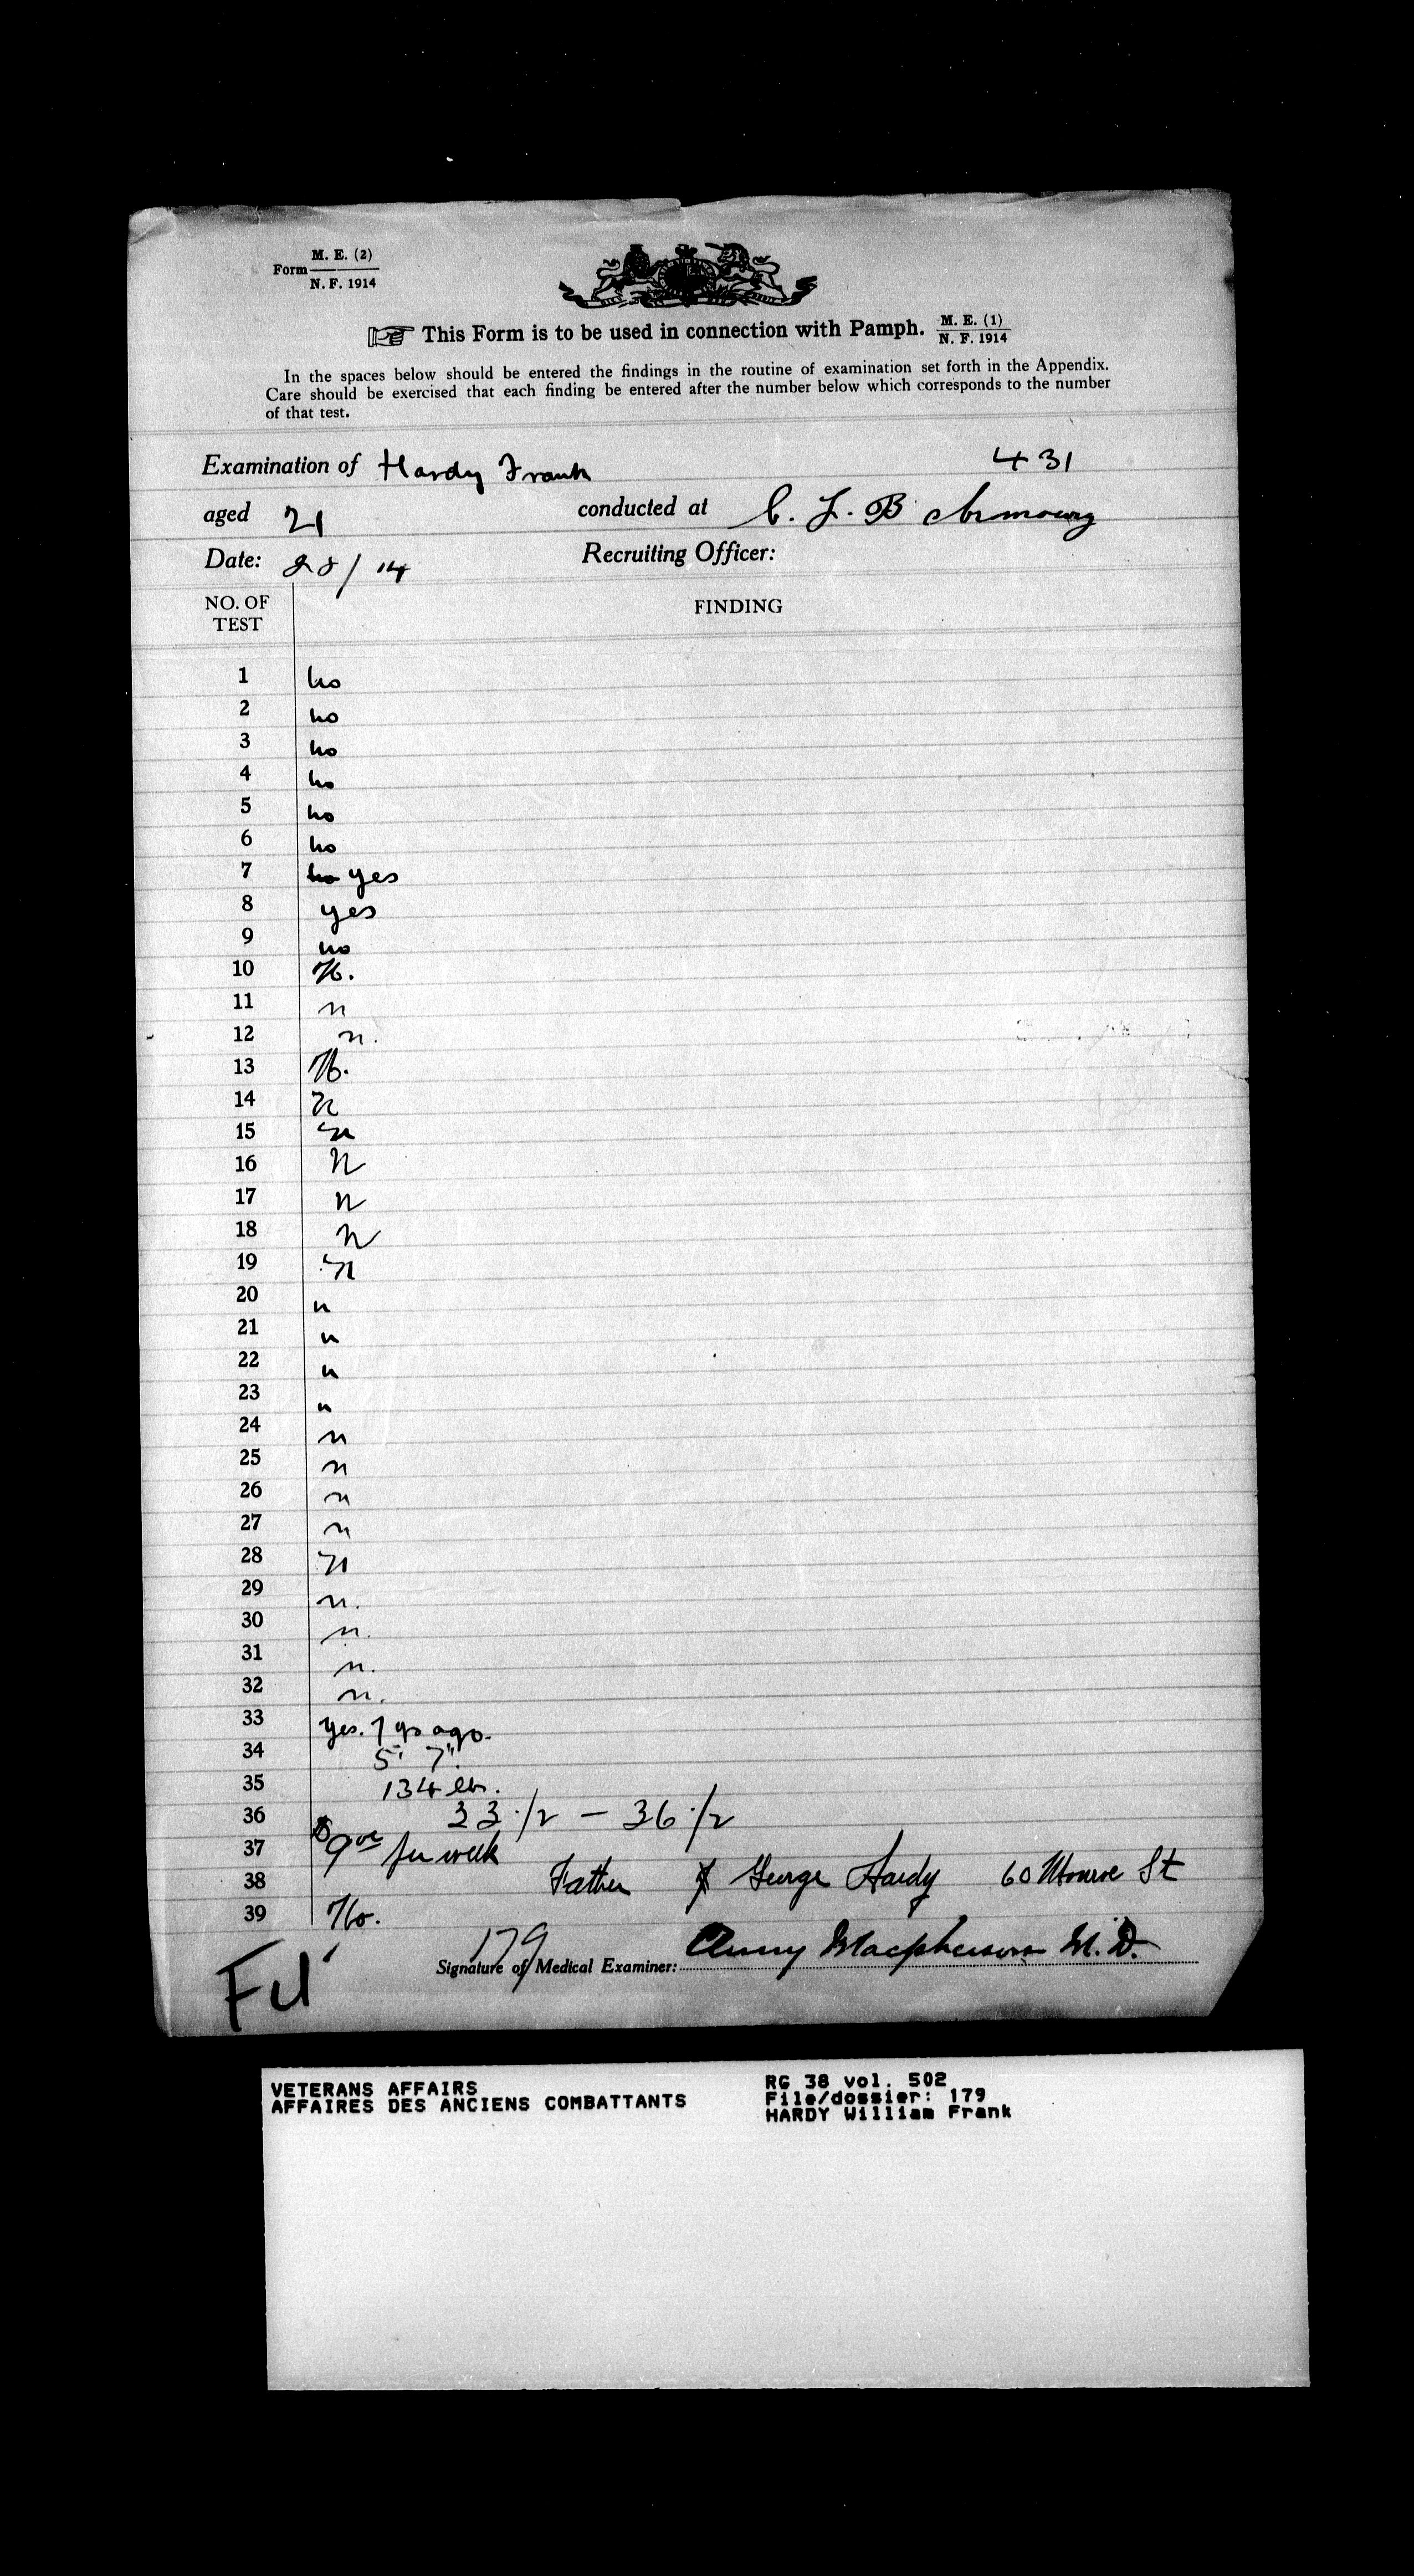 Form M. E. (2)
N. F. 1914
This Form is to be used in connection with Pamph. M. E. (1)
N. F. 1914
In the spaces below should be entered the findings in the routine of examination set forth in the Appendix.
Care should be exercised that each finding be entered after the number below which corresponds to the number
of that test.
431
Examination of Hardy Frank
aged 21 conducted at C. L. B Armoury
Date: 28/14 Recruiting Officer:
NO. OF TEST FINDING
1 no
2 no
3 no
4 no
5 no
6 no
7 no yes
8 yes
9 no
10 N.
11 n
12 n.
13 N.
14 n
15 n
16 n
17 n
18 n
19 n
20 n
21 n
22 n
23 n
24 n
25 n
26 n
27 n
28 n
29 n.
30 n.
31 n.
32 n.
33 yes. 7 yrs ago.
34 5' 7"
35 134 lbs.
36 33 1/2 - 36 1/2
37 $9 00 per week
38 Father George Hardy 60 Monroe St
39 No.
179
Signature of Medical Examiner: Cluny Macpherson M.D.
VETERANS AFFAIRS
AFFAIRES DES ANCIENS COMBATTANTS
RG 38 vol. 502
File/dossier: 179
HARDY William Frank